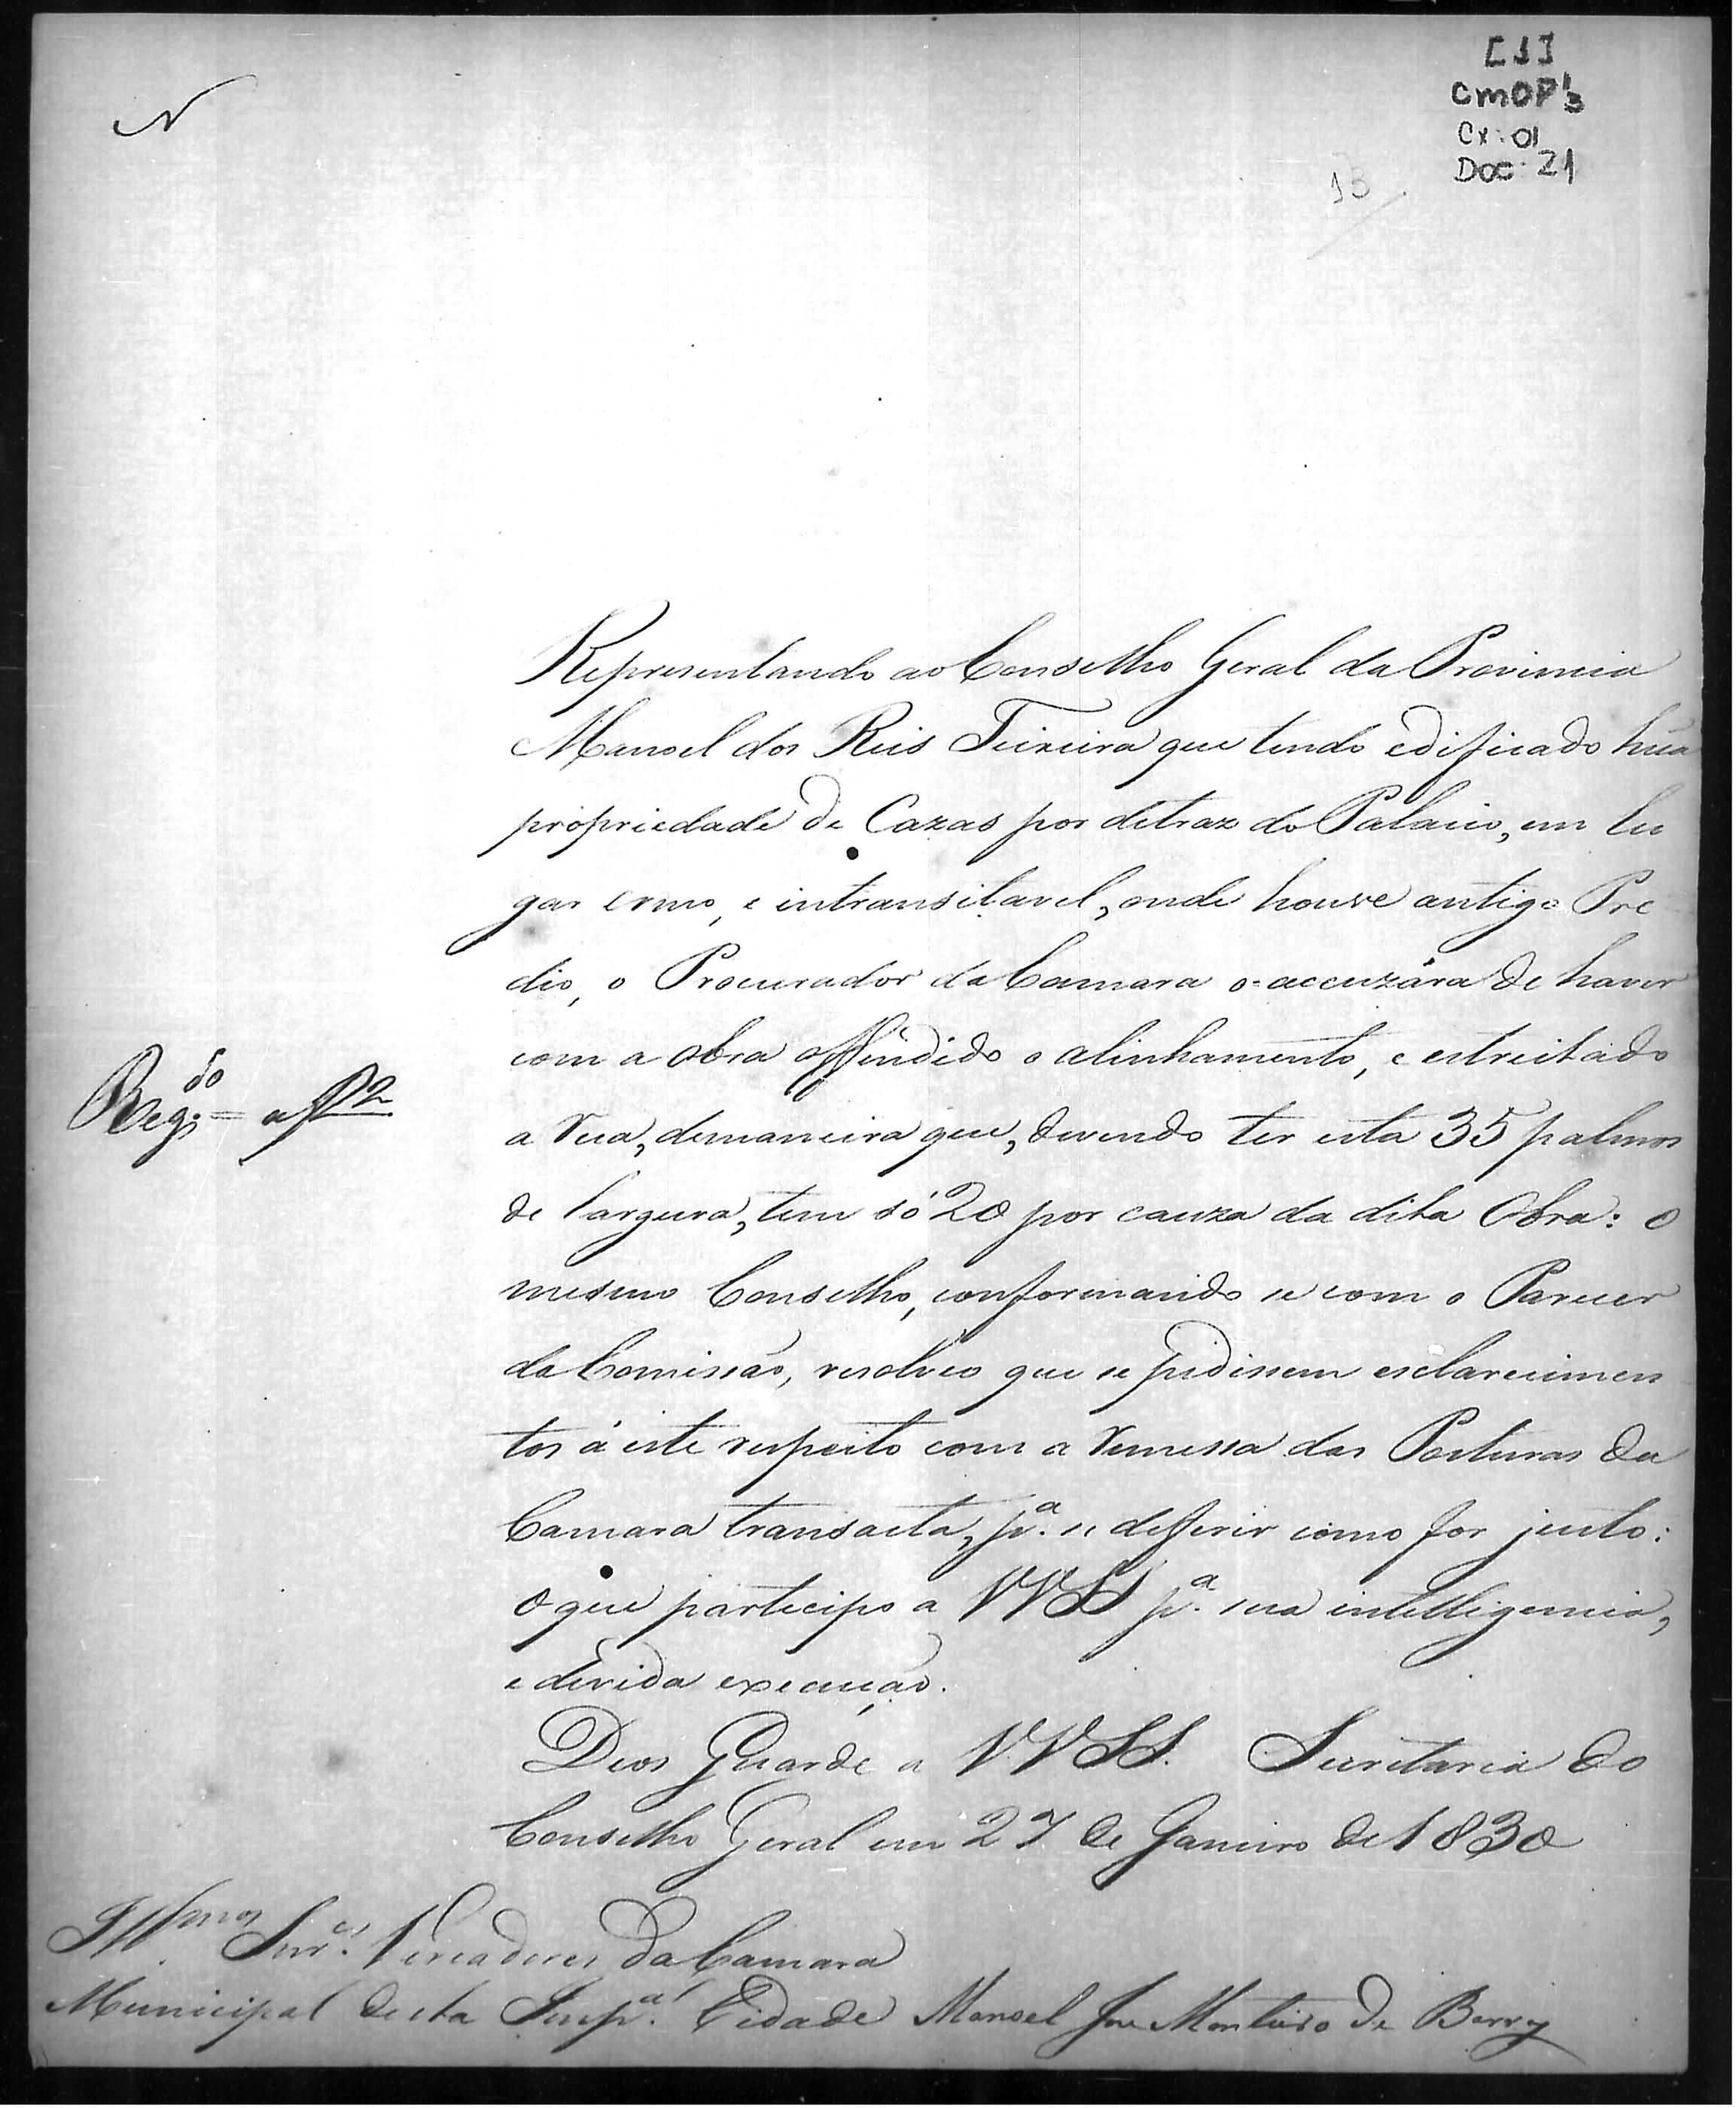 N
[1]
CMOP 1/3
Cx: 01
Doc: 21
13
Representando ao Conselho Geral da Provincia
Manoel dos Reis Teixeira que tendo edificado hũa
propriedade de Cazas por detraz do Palacio, em lu
gar ermo, e intransitavel, onde houve antigo Pre
dio, o Procurador da Camara o accuzára de haver
com a obra offendido o alinhamento, e estreitado
a rua, demaneira que, devendo ter esta 35 palmos
de largura, tem só 20 por cauza da dita Obra: O
mesmo Conselho, conformando se com o Parecer
da Comissão, resolveo que se pedissem esclarecimen
tos á este respeito com a remessa das Posturas da
Camara transacta, pª. se defferir como for justo:
O que participo a VVSS pª. sua intelligencia,
e devida execução.
Regdo = a f
Deos Guarde a VVSS. Secretaria do
Conselho Geral em 27 de Janeiro de 1830
Illmos Snres. Vereadores da Camara
Municipal desta Impal. Cidade Manoel Jose Monteiro de Barros